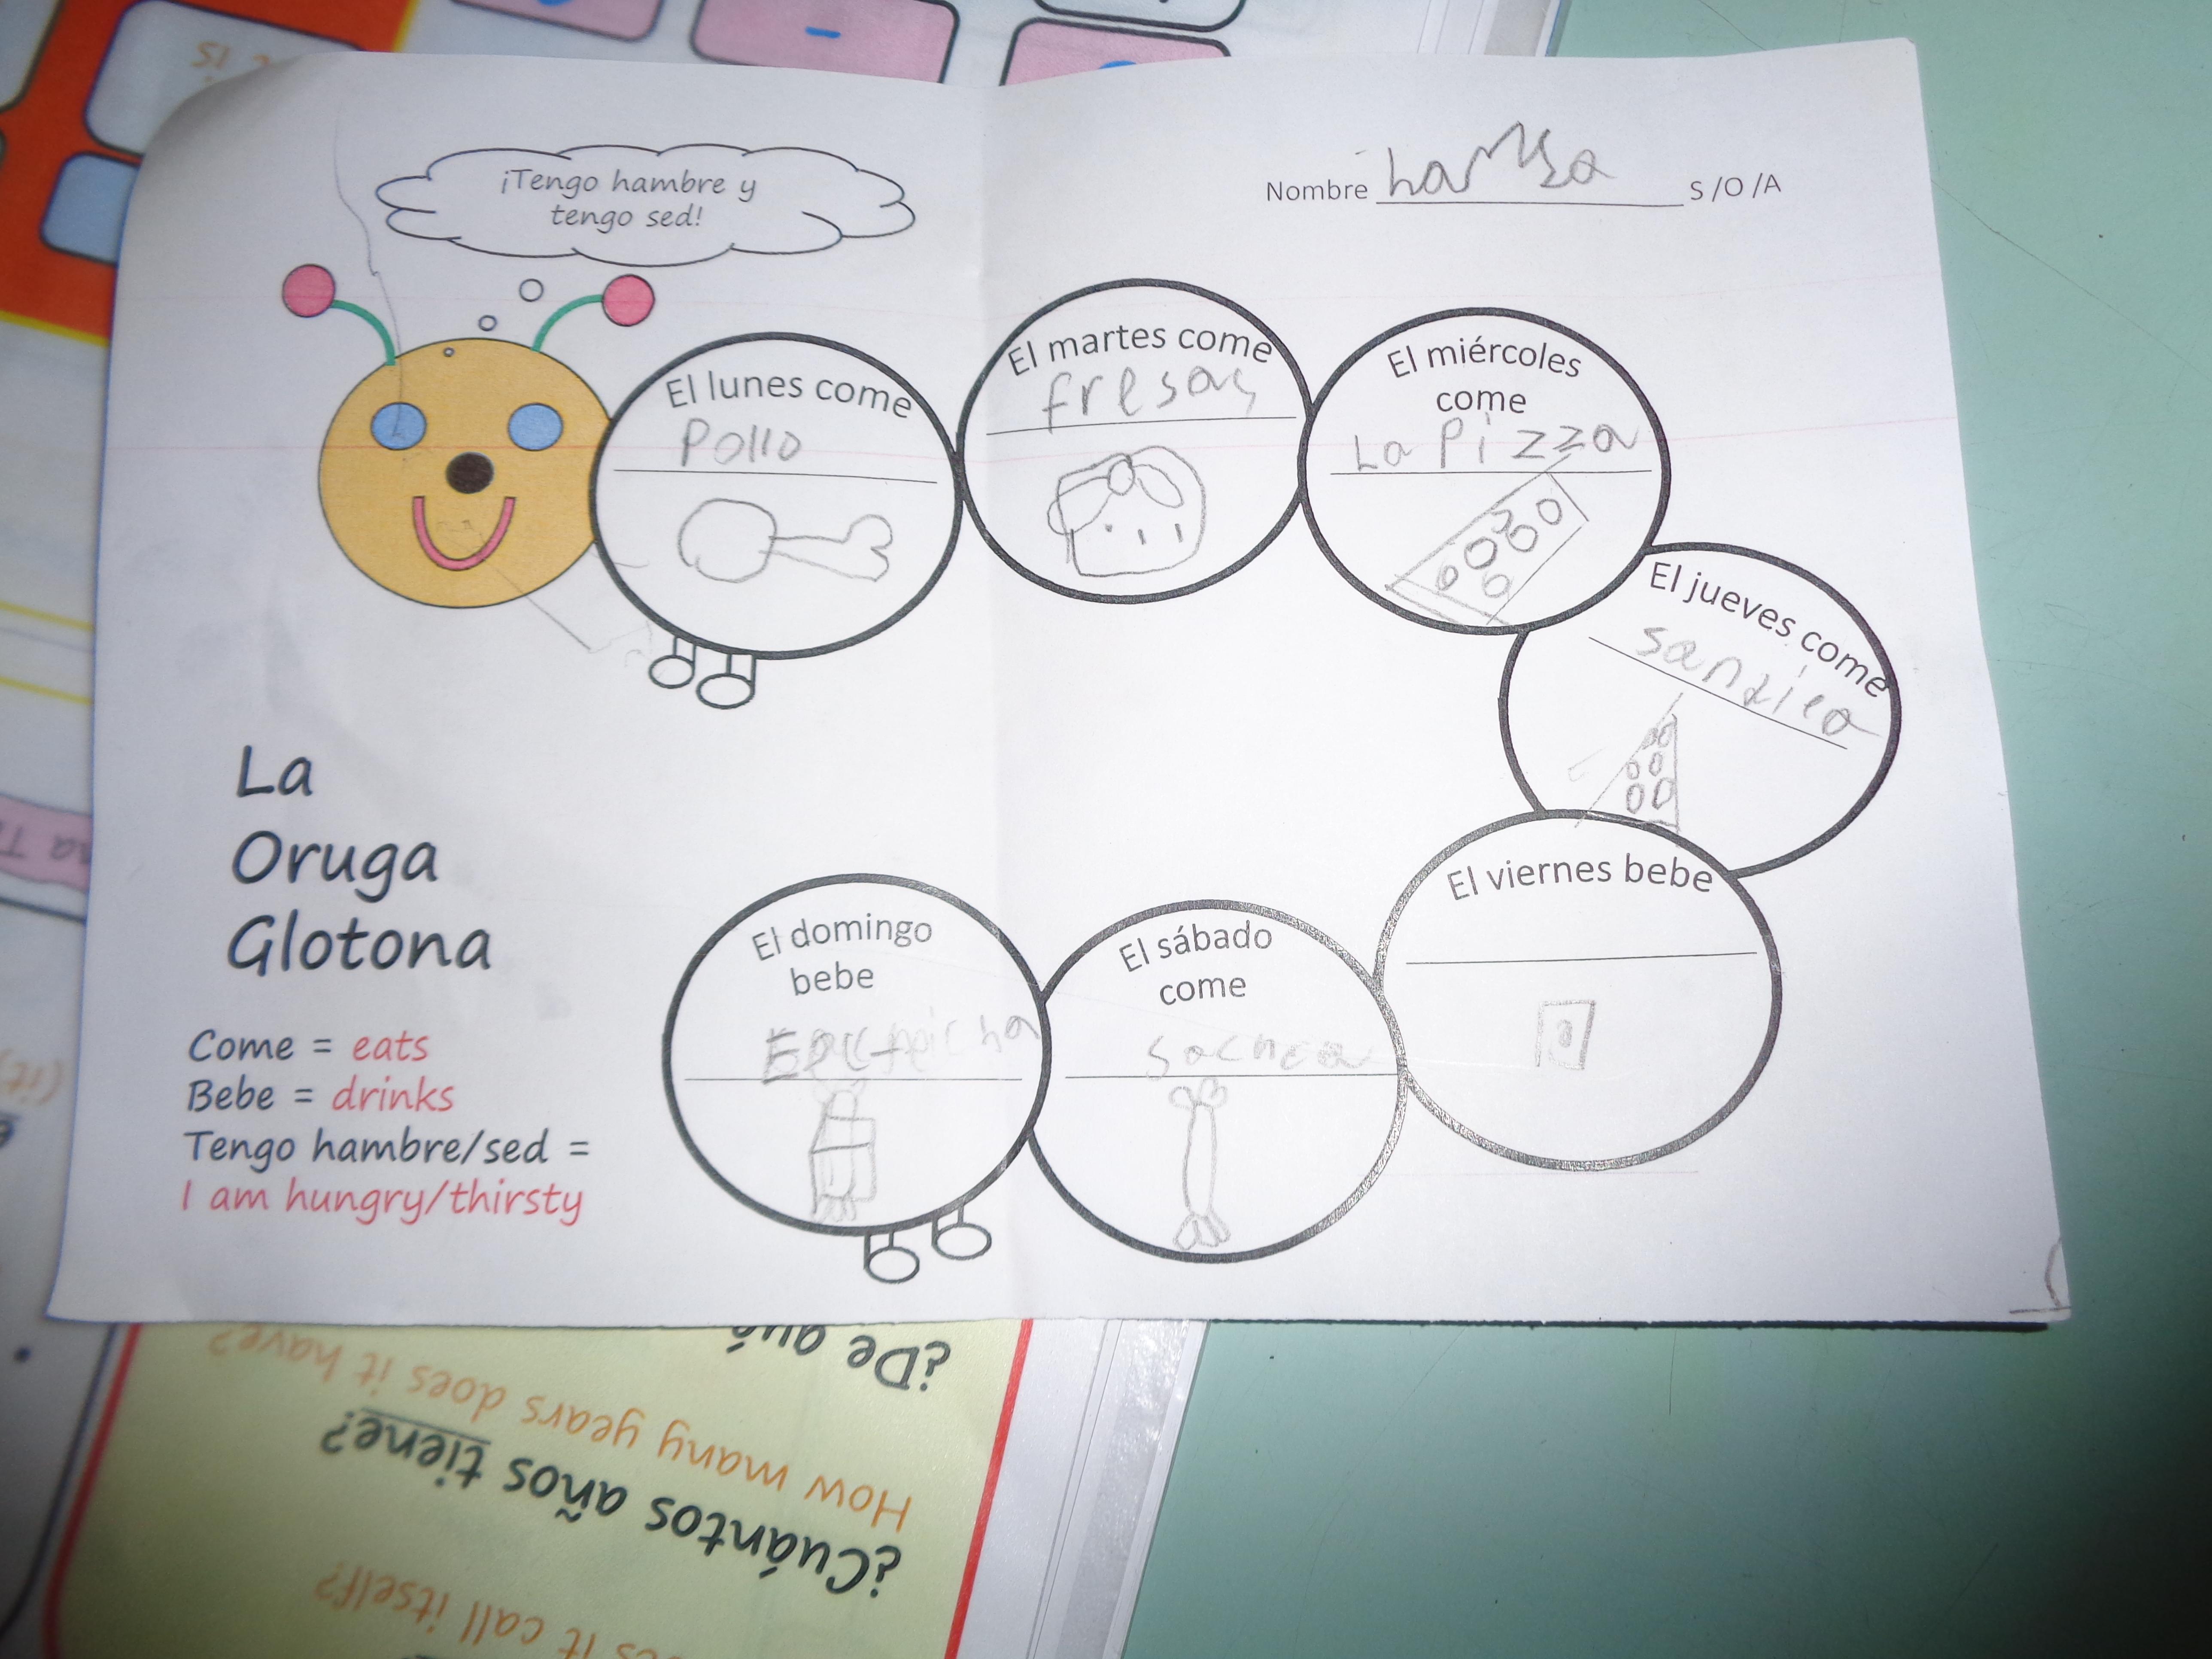 ¡Tengo hambre y
tengo sed!
Nombre hamsa S/O/A
El lunes come
Pollo
El martes come
fresas
El miércoles
come
La Pizza
El jueves come
El viernes bebe
El sábado
come
El domingo
bebe
La
Oruga
Glotona
Come = eats
Bebe = drinks
Tengo hambre/sed =
I am hungry/thirsty
¿De qué
How many years does it have?
¿Cuántos años tiene?
it call itself?